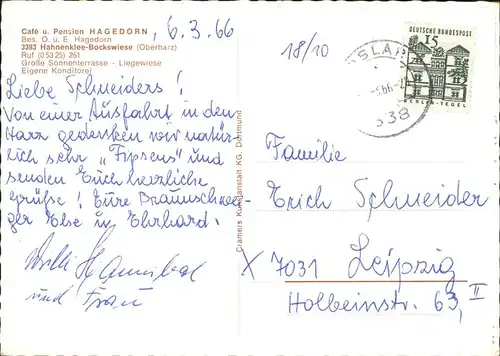 Café u. Pension HAGEDORN
Bes. O. u. E. Hagedorn
3393 Hahnenklee-Bockswiese (Oberharz)
Ruf (05325) 261
Große Sonnenterrasse - Liegewiese
Eigene Konditorei
, 6.3.66
Liebe Schneiders!
Von einer Ausfahrt in den
Harz gedenken wir natür-
lich sehr „Fipsens" und
senden Euch herzliche
Grüße! Eure Braunschwei-
ger Else u. Ehrhard.
Willi Hannibal
und Frau
Cramers Kunstanstalt KG. Dortmund
18/10
SLAR
338
15
DEUTSCHE BUNDESPOST
BERLIN-TEGEL
Familie
Erich Schneider
X 7031 Leipzig
Holbeinstr. 63, II